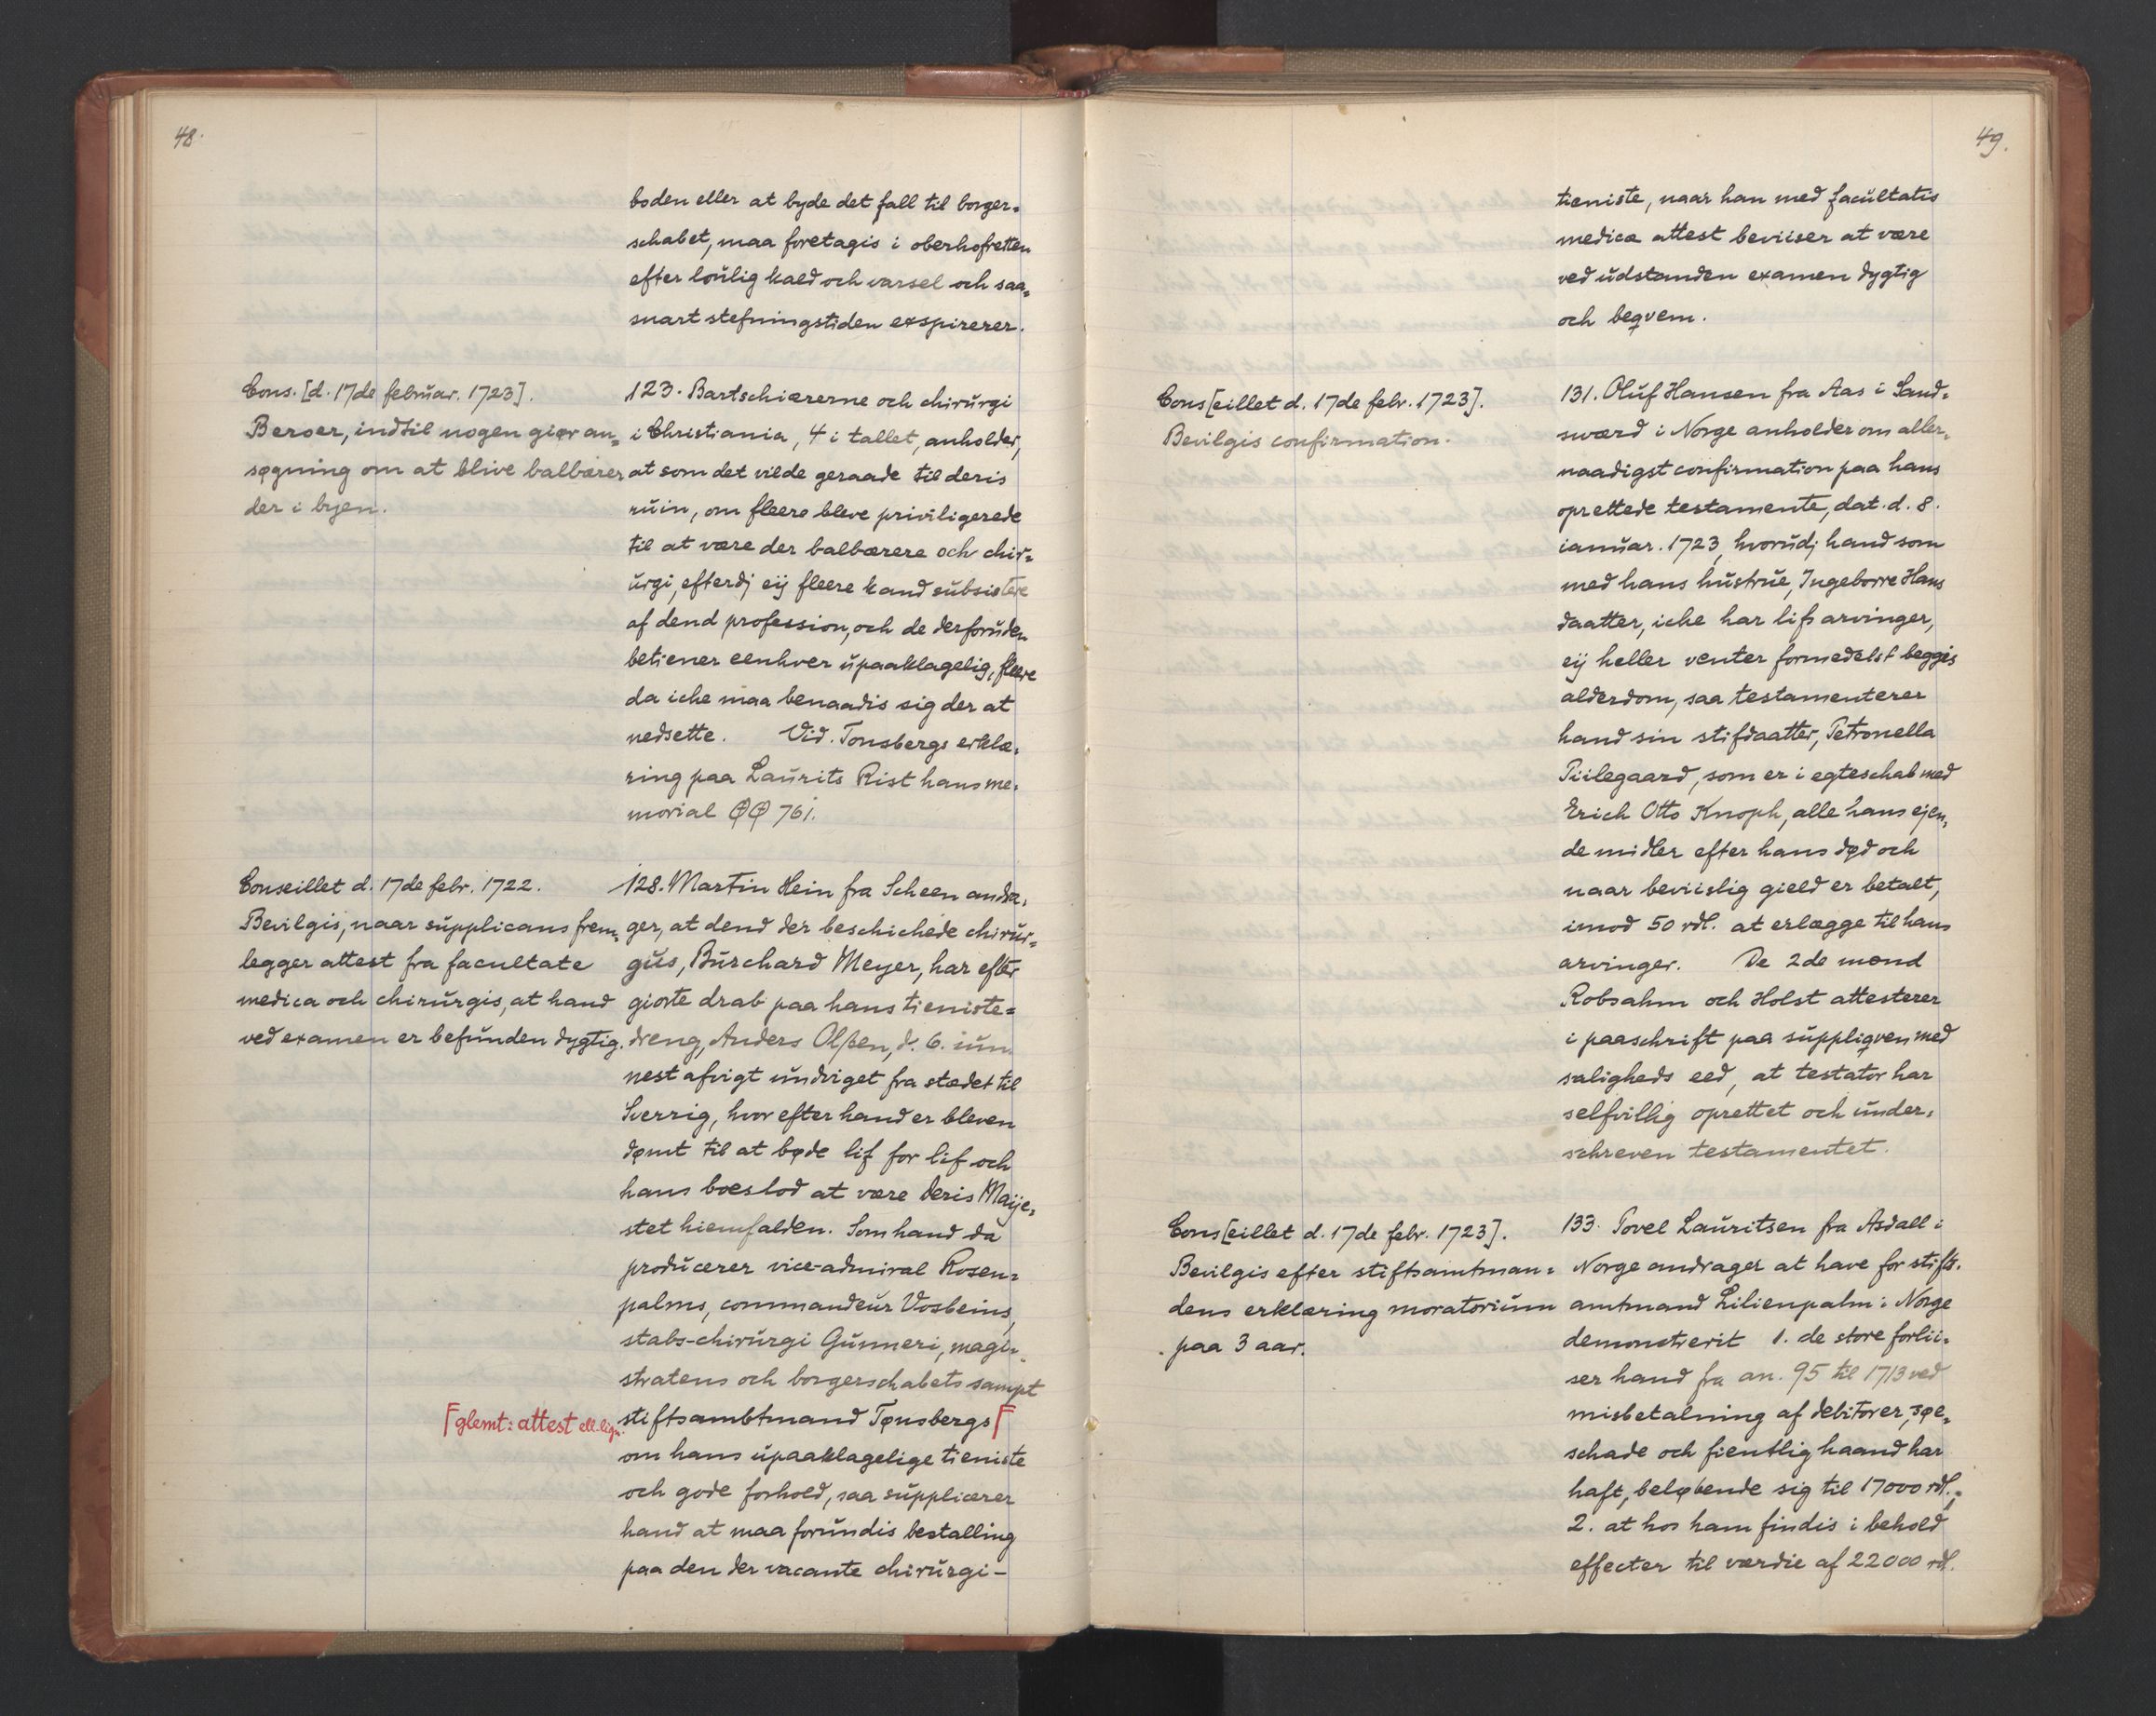 48.
boden eller at byde det fall til borger-
schabet, maa foretagis i oberhofretten
efter loulig kald och varsel och saa-
snart stefningstiden exspirerer.
Cons. [d. 17de februar. 1723].
Beroer, indtil nogen giør an-
søgning om at blive balbærer
der i byen.
123. Bartschiærerne och chirurgi
i Christiania, 4 i tallet, anholder,
at som det vilde geraade til deris
ruin, om fleere bleve priviligerede
til at være der balbærere och chir-
urgi, efterdj eij fleere kand subsistere
af dend profession, och de derforuden
betiener eenhver upaaklagelig, fleere
da iche maa benaadis sig der at
nedsette. Vid. Tonsbergs erklæ-
ring paa Laurits Rist hans me-
morial QQ 761.
Conseillet d. 17de febr. 1722.
Bevilgis, naar supplicans frem-
legger attest fra facultate
medica och chirurgis, at hand
ved examen er befunden dygtig.
128. Martin Hein fra Scheen andra-
ger, at dend der beschichede chirur-
gus, Burchard Meyer, har efter
giorte drab paa hans tieniste-
dreng, Anders Olssen, d. 6. iun.
nest afvigt undviget fra stædet til
Sverrig, hvor efter hand er bleven
dømt til at bøde lif for lif och
hans boeslod at være deris Maije-
stet hiemfalden. Som hand da
producerer vice-admiral Rosen-
palms, commandeur Vosbeins,
stabs-chirurgi Gunneri, magi-
stratens och borgerschabets sampt
stiftsambtmand Tønsbergs ⌈
⌈glemt: attest ell. lign.
om hans upaaklagelige tieniste
och gode forhold, saa supplicerer
hand at maa forundis bestalling
paa den der vacante chirurgi-
49.
tieniste, naar han med facultatis
medicæ attest beviiser at være
ved udstanden examen dygtig
och beqvem.
Cons[eillet d. 17de febr. 1723].
Bevilgis confirmation.
131. Oluf Hansen fra Aas i Sand-
sværd i Norge anholder om aller-
naadigst confirmation paa hans
oprettede testamente, dat. d. 8.
ianuar. 1723, hvorudj hand som
med hans hustrue, Ingeborre Hans
daatter, iche har lifs arvinger,
eij heller venter formedelst beggis
alderdom, saa testamenterer
hand sin stifdaatter, Petronella
Piilegaard, som er i egteschab med
Erich Otto Knoph, alle hans ejen-
de midler efter hans død och
naar beviislig gield er betalt,
imod 50 rdl. at erlægge til hans
arvinger. De 2de mænd
Robsahm och Holst attesterer
i paaschrift paa suppliqven med
saligheds eed, at testator har
selfvillig oprettet och under-
schreven testamentet.
Cons[eillet d. 17de febr. 1723].
Bevilgis efter stiftsamtman-
dens erklæring moratorium
paa 3 aar.
133. Povel Lauritsen fra Asdall i
Norge andrager at have for stift-
amtmand Lilienpalm i Norge
demonstrerit 1. de store forlii-
ser hand fra an. 95 til 1713 ved
misbetalning af debitorer, søe-
schade och fientlig haand har
haft, beløbende sig til 17000 rdl.;
2. at hos ham findis i behold
effecter til værdie af 22000 rdl.